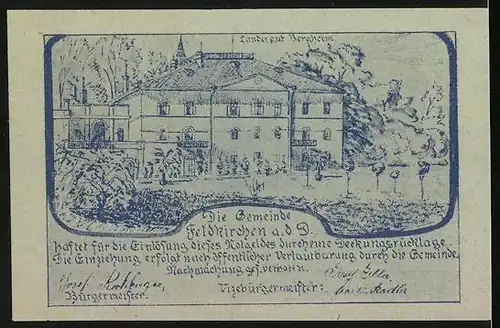 Landesgut Bergheim
Die Gemeinde
Feldkirchen a.d.D.
haftet für die Einlösung dieses Notgeldes durch eine Deckungsrücklage.
Die Einziehung erfolgt nach öffentlicher Verlautbarung durch die Gemeinde.
Nachmachung ges. verboten.
Josef
Bürgermeister. Vizebürgermeister: